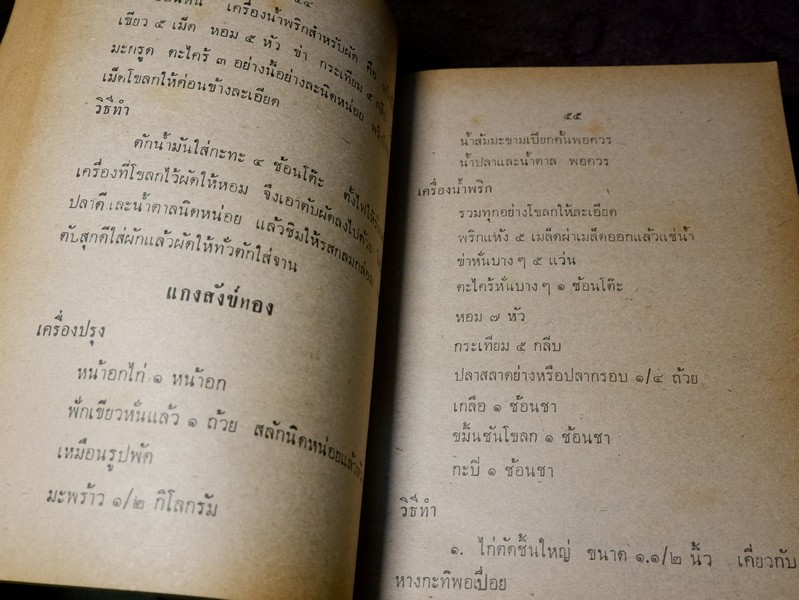 เครื่องน้ำพริกสำหรับผัด คือ
เขียว ๕ เม็ด หอม ๕ หัว ข่า กระเทียม ๕ กลีบ
มะกรูด ตะไคร้ ๓ อย่างนี้อย่างละนิดหน่อย
เม็ดโขลกให้ค่อนข้างละเอียด
วิธีทำ
ตักน้ำมันใส่กะทะ ๔ ช้อนโต๊ะ ตั้งไฟให้
เครื่องที่โขลกไว้ผัดให้หอม จึงเอาตับผัดลงไปด้วย
ปลาดีและน้ำตาลนิดหน่อย แล้วชิมให้รสกลมกล่อม
ตับสุกดีใส่ผักแล้วผัดให้ทั่วตักใส่จาน
แกงสังข์ทอง
เครื่องปรุง
หน้าอกไก่ ๑ หน้าอก
ฟักเขียวหั่นแล้ว ๑ ถ้วย สลักนิดหน่อยแล้ว
เหมือนรูปพัด
มะพร้าว ๑/๒ กิโลกรัม
๕๕
น้ำส้มมะขามเปียกคั้นพอควร
น้ำปลาและน้ำตาล พอควร
เครื่องน้ำพริก
รวมทุกอย่างโขลกให้ละเอียด
พริกแห้ง ๕ เมล็ดผ่าเมล็ดออกแล้วแช่น้ำ
ข่าหั่นบางๆ ๕ แว่น
ตะไคร้หั่นบางๆ ๑ ช้อนโต๊ะ
หอม ๗ หัว
กระเทียม ๕ กลีบ
ปลาสลาดย่างหรือปลากรอบ ๑/๔ ถ้วย
เกลือ ๑ ช้อนชา
ขมิ้นชันโขลก ๑ ช้อนชา
กะปิ ๑ ช้อนชา
วิธีทำ
๑. ไก่ตัดชิ้นใหญ่ ขนาด ๑.๑/๒ นิ้ว เคี่ยวกับ
หางกะทิพอเปื่อย